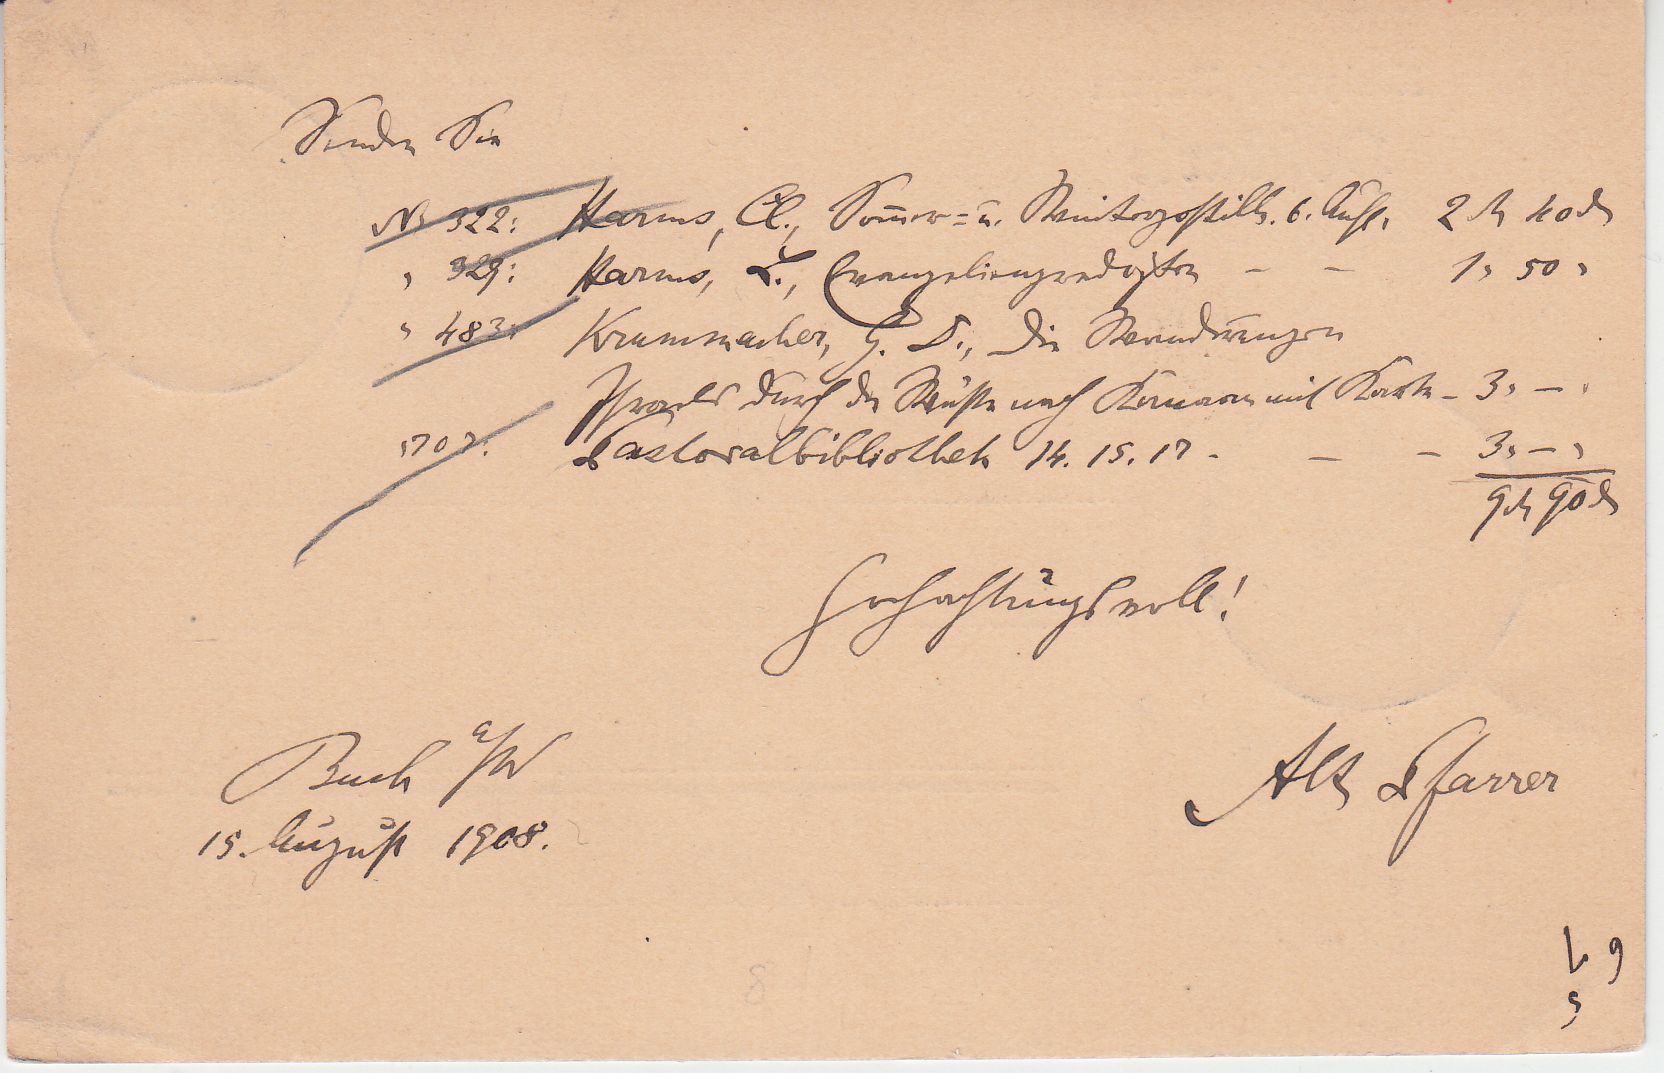 Senden Sie
No 322: Harms, Cl., Sommer= u. Winterpostille. 6. Aufl. 2 M 40 d
" 329: Harms, L., Evangelienpredigten - - 1 " 50 "
" 483: Krummacher, G. D., Die Wanderungen
Israels durch die Wüste nach Kanaan mit Karte - 3 " - "
" 707: Pastoralbibliothek 14. 15. 17 - - - 3 " - "
9 M 90 d
Hochachtungsvoll!
Buch a/W
Alt, Pfarrer
15. August 1908.
8